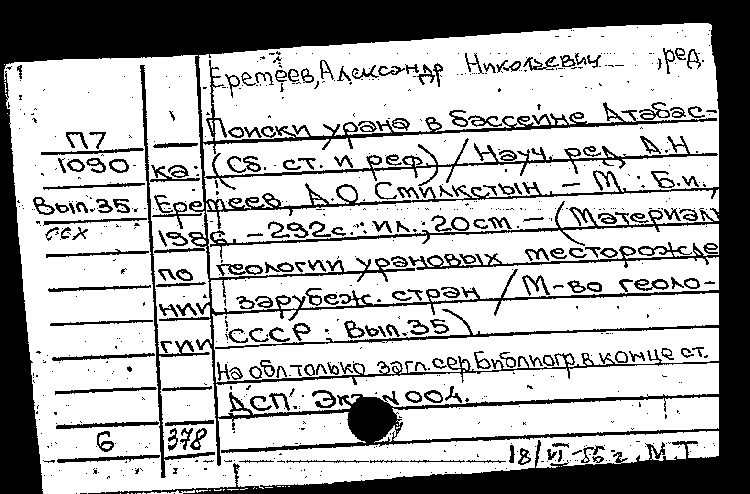 Еремеев, Александр Николаевич, ред.
Поиски урана в бассейне Атабас-
П7
1090
ка: (Сб. ст. и реф.) / Науч. ред. А.Н.
Вып.35.
Еремеев, А.О. Смилкстын. – М. : Б.и.,
ссх
1986. – 292с. : ил., 20см. – (Материалы
по геологии урановых месторожде
ний зарубеж. стран / М-во геоло-
гии СССР ; Вып.35).
На обл. только загл. сер. Библиогр. в конце ст.
ДСП. Экз. N 004.
6 378
18/VI-86 г. М.Т